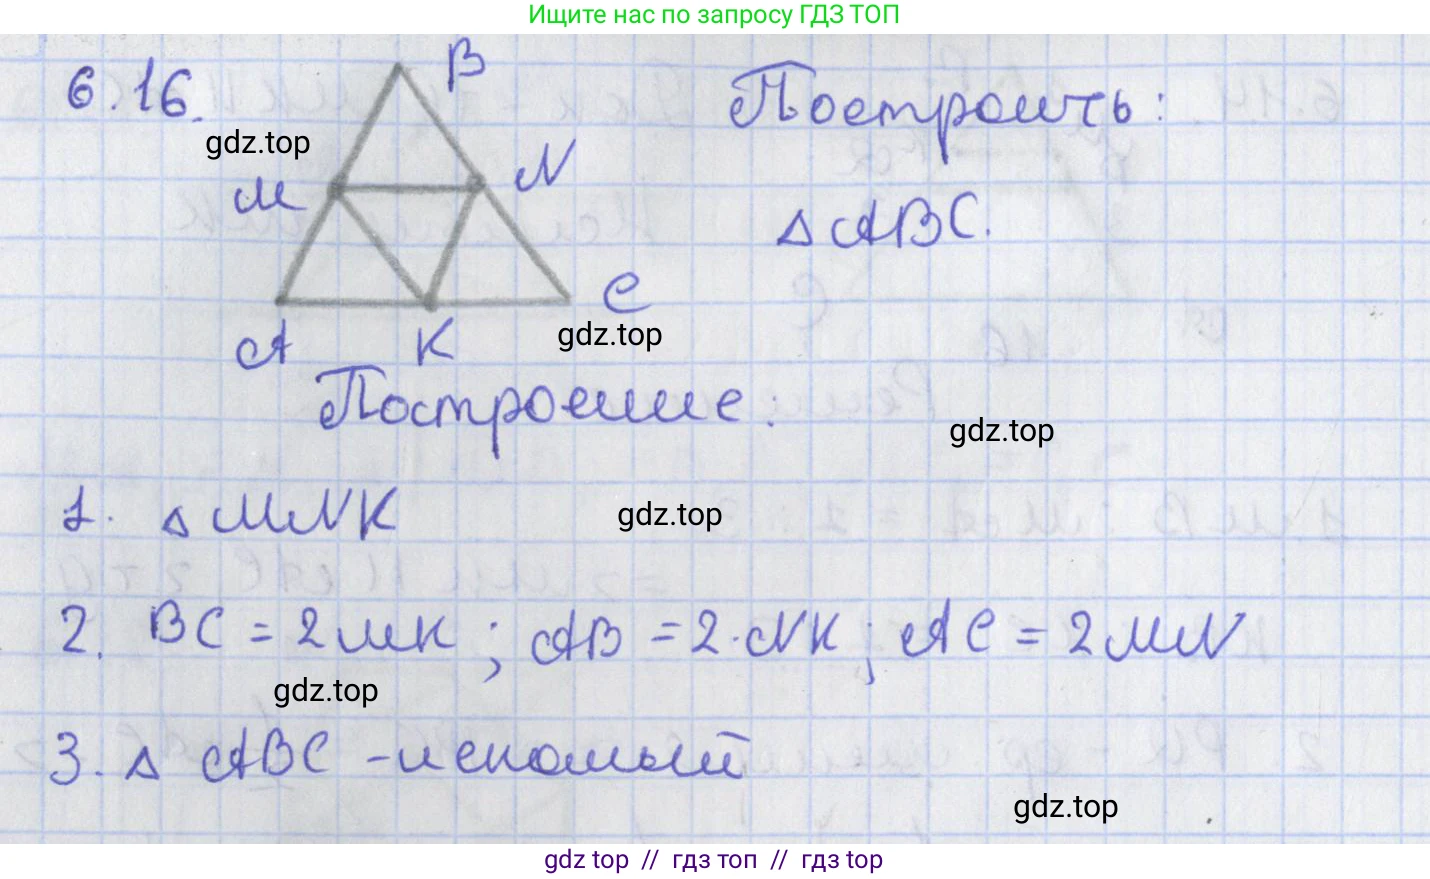 Ищите нас по запросу ГДЗ ТОП
6.16.
B
Построить:
gdz.top
M
N
△ABC.
C
A
K
gdz.top
Построение:
gdz.top
1. △MNK
gdz.top
2. BC = 2MK; AB = 2·NK; AC = 2MN
gdz.top
3. △ABC - искомый
gdz.top
gdz top // гдз топ // гдз top